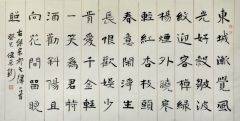 東城漸覺風
光好縠皺波
紋迎客棹綠
楊煙外曉寒
輕紅杏枝頭
春意鬧浮生
長恨歡娛少
肯愛千金輕
一笑為君持
酒勸斜陽且
向花間留晚
照